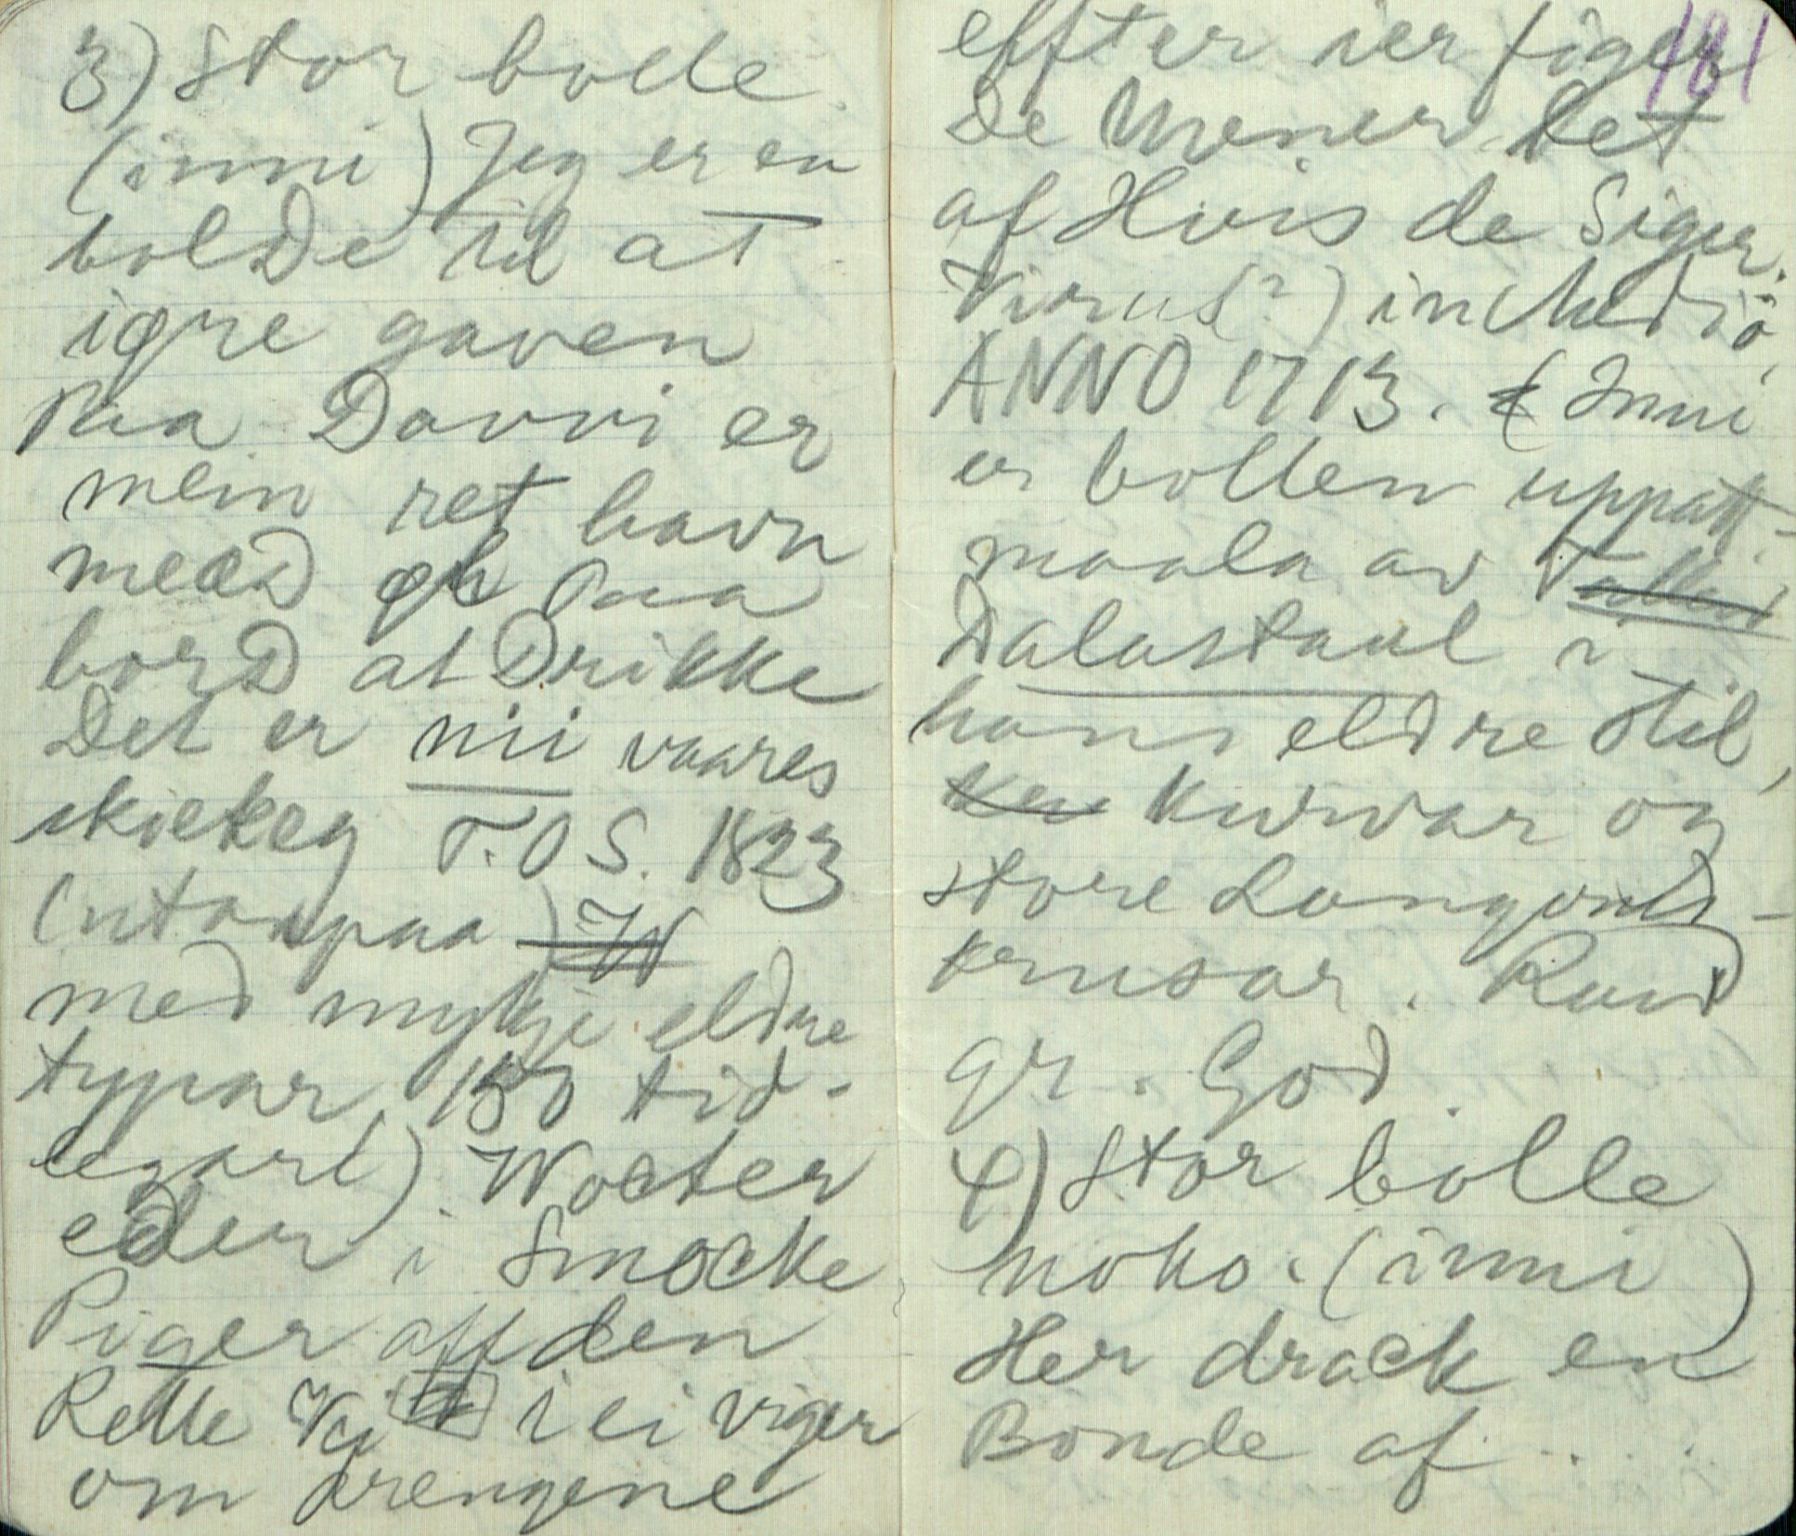 3) Stor bolle.
(inni) Jeg er en
bolde til at
igre gaven
Paa Davvi er
mein ret havn
meed øh Paa
borD at Drikke
Det er nii vaares
skickeg T.O S. 1823
(utanpaa)
med mykje eldre
typar, 150 tid-
legare). Wocter
eder i Smocke
Piger aff den
Rette Vej i ei viger
om drengene
effter ier figer
De Mener Det
af Hvis de Siger.
Virus(?) in Medio,
ANNO 1713. (Inni
er bollen uppatt-
maala av
Dalastaul i
hans eldre stil,
kurvar og
store Langords-
krusar. Raud
gr. God.
4) Stor bolle
noko. (inni)
Her drack en
Bonde af . . .
181